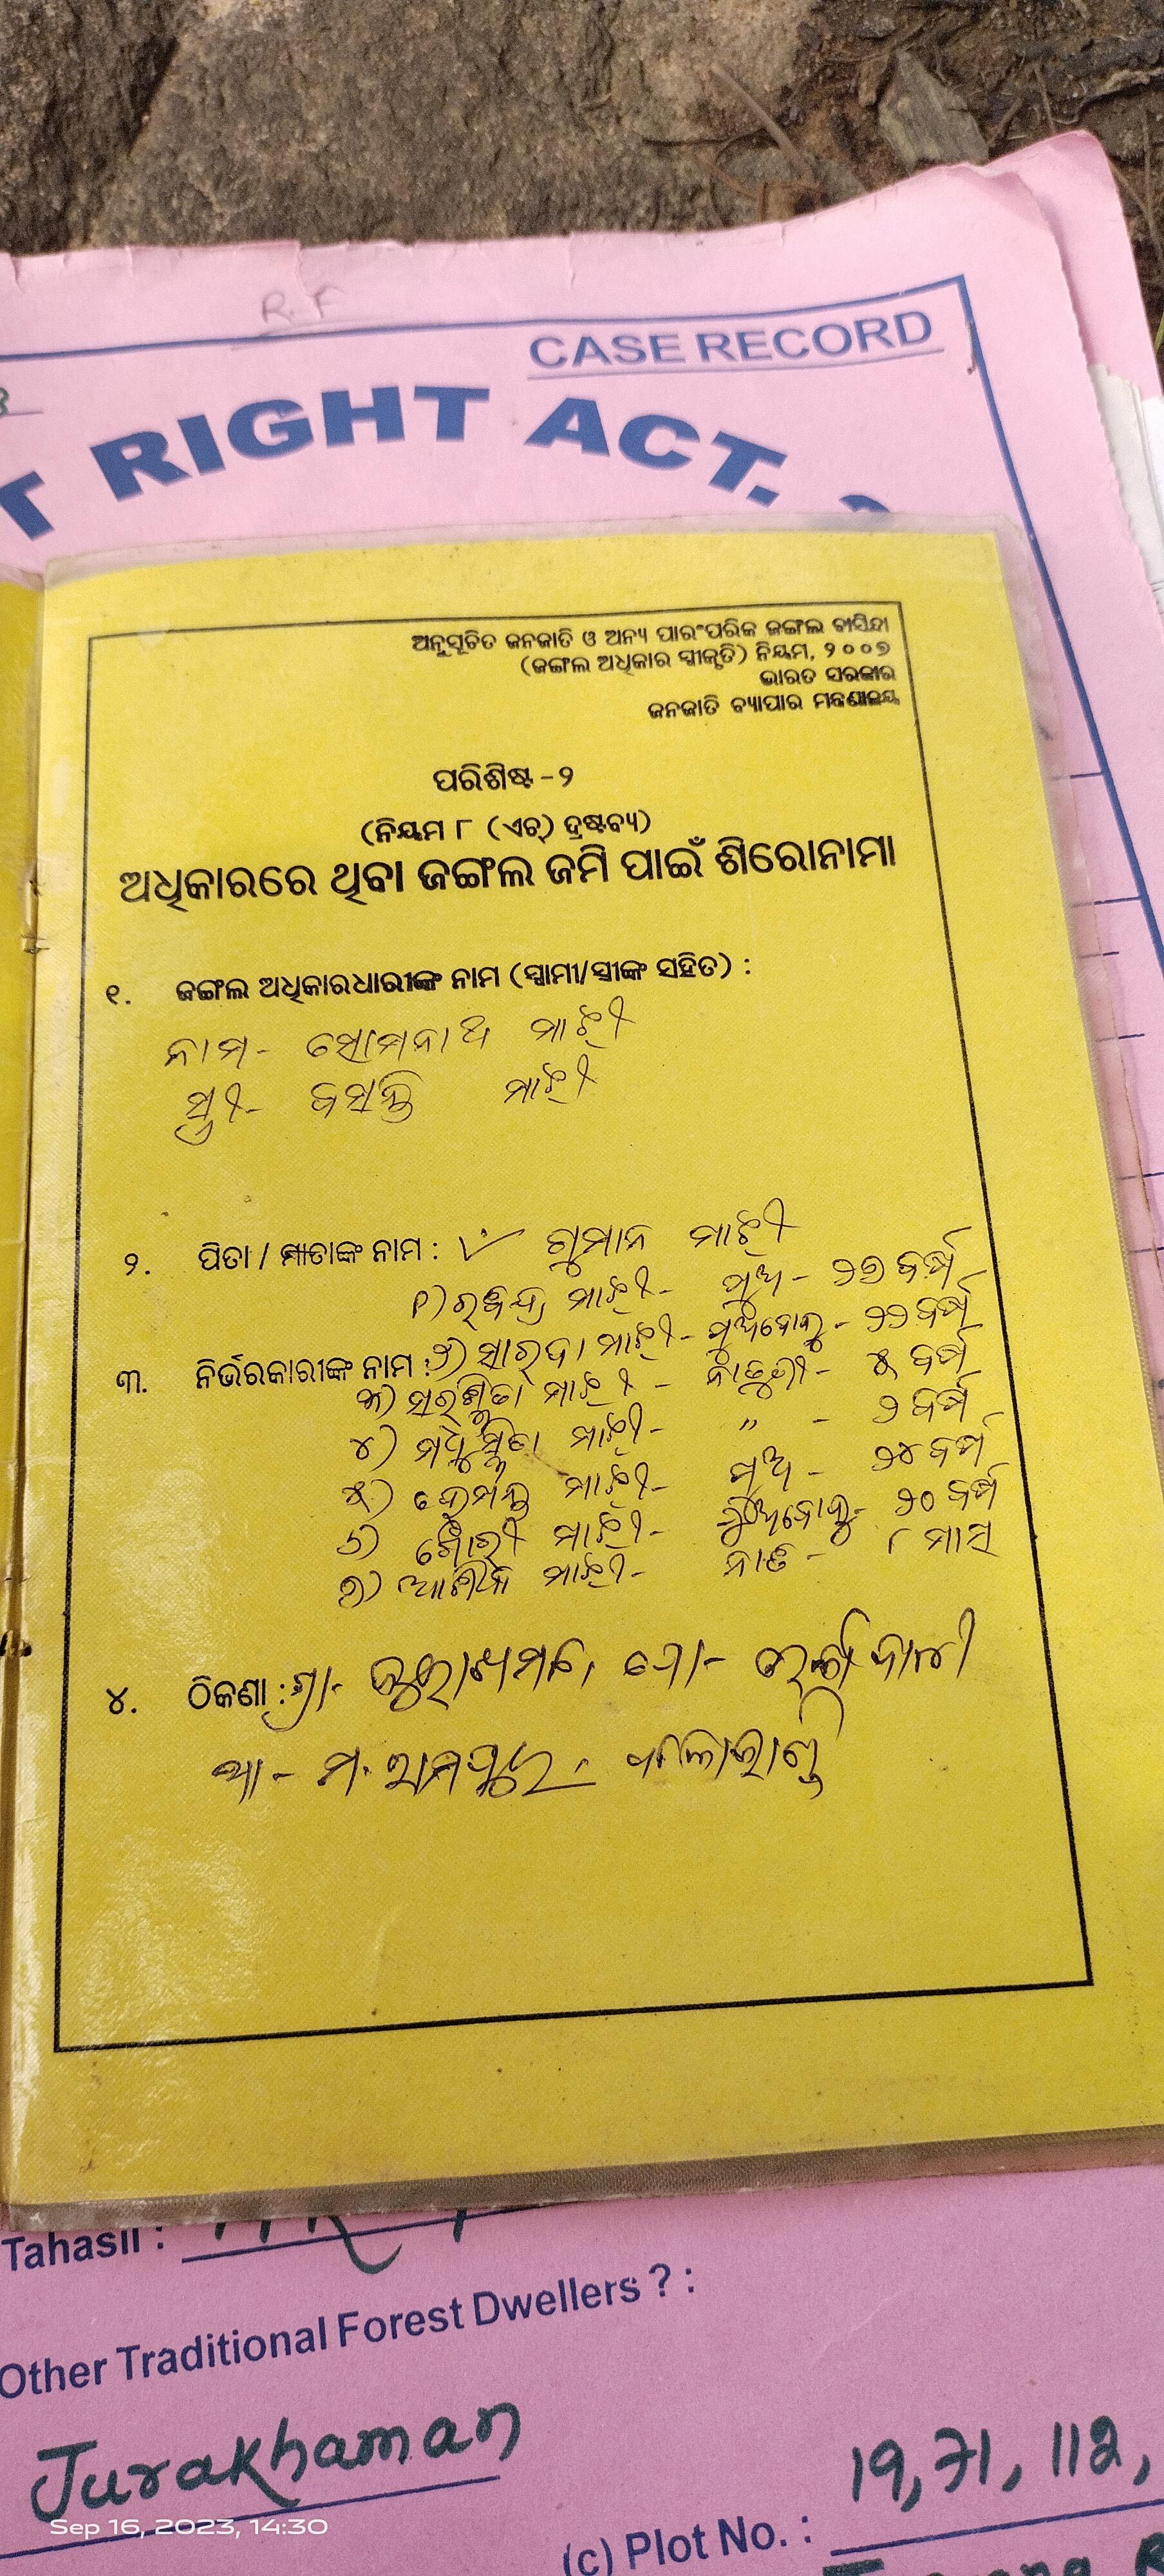 R.F
CASE RECORD
RIGHT ACT.
ଅନୁସୂଚିତ ଜନଜାତି ଓ ଅନ୍ୟ ପାରଂପରିକ ଜଙ୍ଗଲ ବାସିନ୍ଦା
(ଜଙ୍ଗଲ ଅଧିକାର ସ୍ବୀକୃତି) ନିୟମ, ୨୦୦୭
ଭାରତ ସରକାର
ଜନଜାତି ବ୍ୟାପାର ମନ୍ତ୍ରଣାଳୟ
ପରିଶିଷ୍ଟ -୨
(ନିୟମ ୮ (ଏଚ୍) ଦ୍ରଷ୍ଟବ୍ୟ)
ଅଧିକାରରେ ଥିବା ଜଙ୍ଗଲ ଜମି ପାଇଁ ଶିରୋନାମା
୧. ଜଙ୍ଗଲ ଅଧିକାରଧାରୀଙ୍କ ନାମ (ସ୍ୱାମୀ/ସ୍ତ୍ରୀଙ୍କ ସହିତ) :
ନାମ- ସୋମନାଥ ମାଝୀ
ସ୍ତ୍ରୀ- ବସନ୍ତି ମାଝୀ
୨. ପିତା / ମାତାଙ୍କ ନାମ : ଗୁମାନ ମାଝୀ
୧) ରବିନ୍ଦ୍ର ମାଝୀ- ପୁଅ- ୨୭ ବର୍ଷ
୩. ନିର୍ଭରକାରୀଙ୍କ ନାମ : ୨) ସାରଦା ମାଝୀ- ପୁଅବୋହୂ- ୨୨ ବର୍ଷ
୩) ମାଝୀ - ନାତୁଣୀ- ୫ ବର୍ଷ
୪) ମଧୁସ୍ମିତା ମାଝୀ- " - ୨ ବର୍ଷ
୫) ହେମନ୍ତ ମାଝୀ- ପୁଅ - ୨୪ ବର୍ଷ
୬) ଗୌରୀ ମାଝୀ- ପୁଅବୋହୂ- ୨୦ ବର୍ଷ
୭) ମାଝୀ- ନାତି - ୮ ମାସ
୪. ଠିକଣା : ଗ୍ରା- ଜୁରାଖମନ, ପୋ-
ଥା- ମ. ରାମପୁର, କଳାହାଣ୍ଡି
Tahasil :
Other Traditional Forest Dwellers ? :
Jurakhaman
19, 71, 112,
(c) Plot No. :
Sep 16, 2023, 14:30